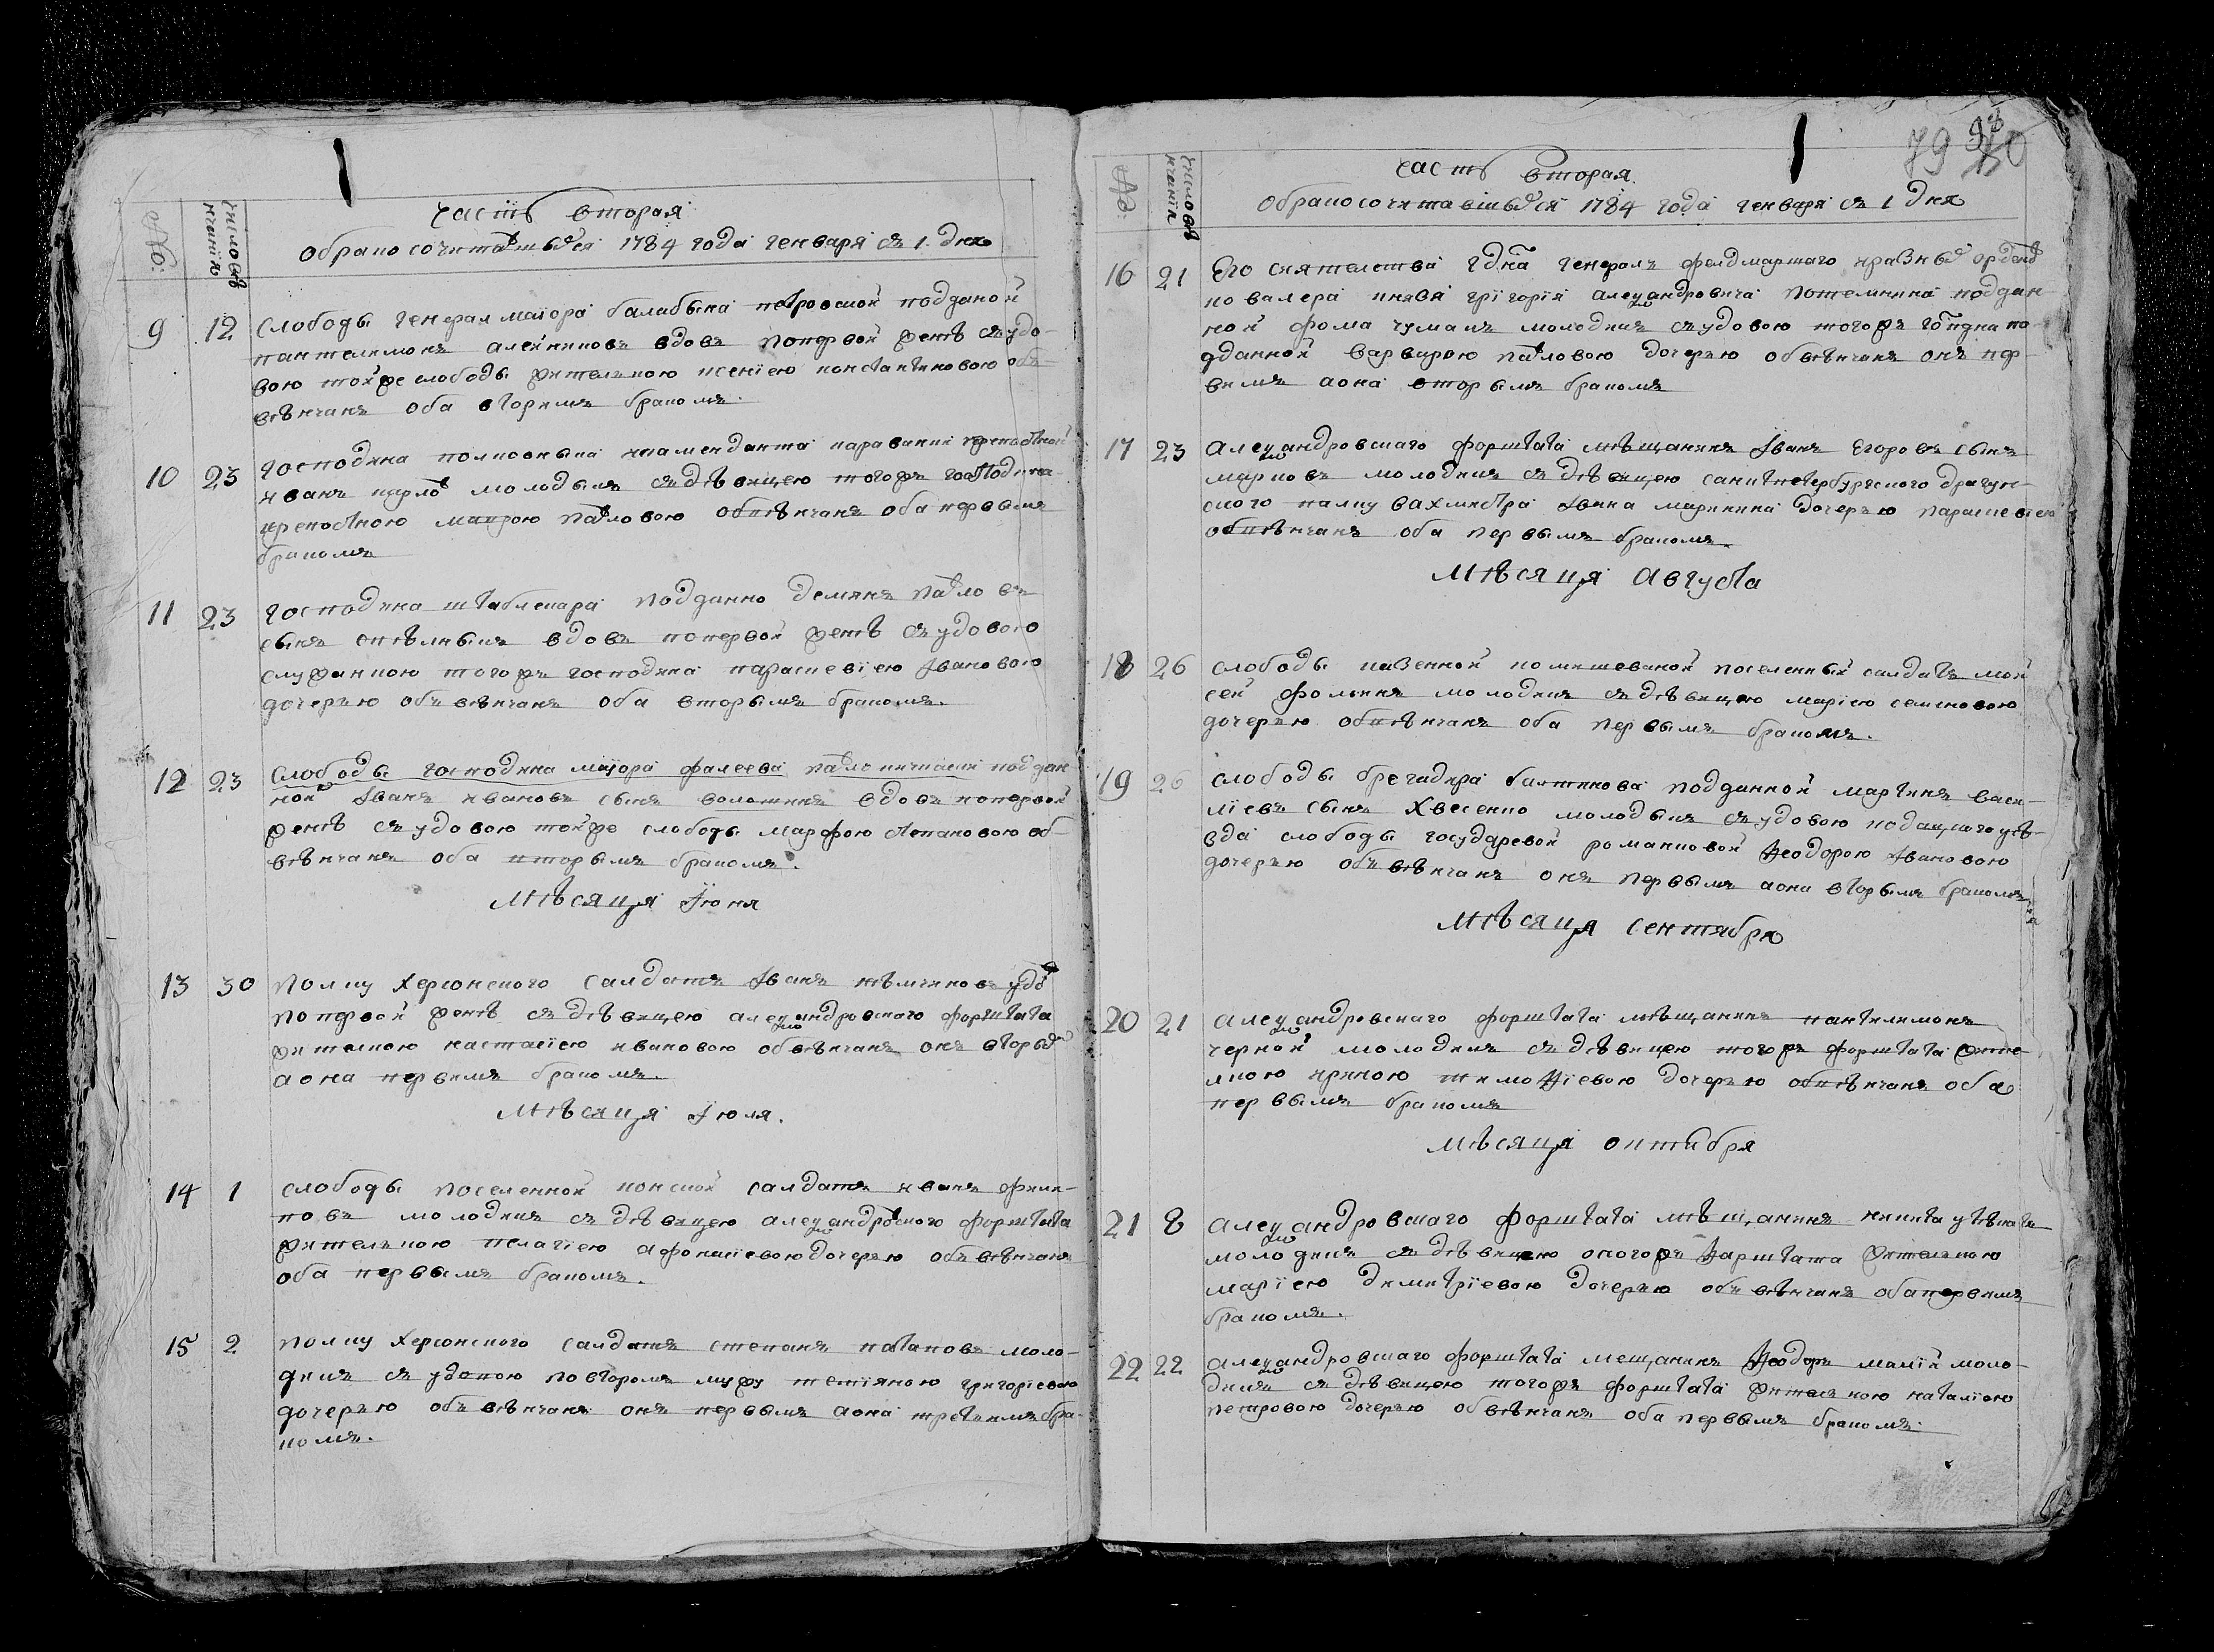 часть вторая
о бракосочитавшихся 1784 года генваря съ 1 дня
№:
число вѣнчанія
9 12 Слободы генерал маіора балабина петровской подданой
пантелимонъ алейниковъ вдовъ попервой женѣ съ удо-
вою тойже слободы жителкою ксеніею константиновою об-
вѣнчанъ оба вторимъ бракомъ.
10 23 господина полковника
иванъ молодымъ съ дѣвицею тогожъ господина
крепостною маврою павловою обвѣнчанъ оба первымъ
бракомъ
11 23 господина штаблекара подданно демянъ павловъ
сынъ вдовъ попервой женѣ съ удовою
служанкою тогожъ господина параскевіею Ивановою
дочерью обвѣнчанъ оба вторымъ бракомъ.
12 23 Слободы господина маіора фалеева поддан-
ной Иванъ ивановъ сынъ волошинъ вдовъ попервой
женѣ съ удовою тойже слободы марфою степановою об-
вѣнчанъ оба вторымъ бракомъ.
Мѣсяця Іюня
13 30 Полку херсонского салдатъ Иванъ нѣмчиновъ удов
попервой женѣ съ дѣвицею александровского форштата
жителкою настасіею ивановою обвѣнчанъ онъ вторы
а она первимъ бракомъ.
Мѣсяця Іюля.
14 1 слободы поселенной конской салдатъ иванъ фили-
повъ молодимъ съ дѣвицею александровского форштата
жителкою пелагіею афонасіевою дочерью обвѣнчанъ
оба первымъ бракомъ.
15 2 полку херсонского салдатъ степанъ потаповъ моло-
димъ съ удовою повторомъ мужу тетіяною григоріевою
дочерью обвѣнчанъ онъ первымъ а она третимъ бра-
комъ.
79
часть вторая
о бракосочитавшихся 1784 года генваря съ 1 дня
№:
число вѣнчанія
16 21 Его сиятелства гдна генералъ фелдмаршаго и разныхъ орденовъ
ковалера князя григорія александровича потемкина поддан-
ной фома чумакъ молодимъ съ удовою тогожъ гопдна по-
дданной варварою павловою дочерью обвѣнчанъ онъ пер-
вимъ а она вторымъ бракомъ
17 23 Александровскаго форштата мѣщанинъ Иванъ Егоровъ сынъ
марковъ молодимъ съ дѣвицею санктпетербургского драгун-
ского полку вахмистра Ивана дочерью параскевіею
обвѣнчанъ оба первымъ бракомъ.
Мѣсяця Августа
18 26 слободы казенной поселенный салдатъ мой
сей молодимъ съ дѣвицею маріею семеновою
дочерью обвѣнчанъ оба первымъ бракомъ.
19 26 слободы брегадира подданной мартинъ васи-
ліевъ сынъ хвесенко молодымъ съ удовою уѣ-
зда слободы государевой романковой Ѳеодорою Ивановою
дочерью обвѣнчанъ онъ первымъ а она вторымъ бракомъ
Мѣсяця сентября
20 21 александровскаго форштата мѣщанинъ пантилимонъ
черной молодимъ съ дѣвицею тогожъ форштата жите-
лкою ириною тимоѳіевою дочерью обвѣнчанъ оба
первымъ бракомъ
Мѣсяця октября
21 8 александровскаго форштата мѣщанинъ никита
молодимъ съ дѣвицею оногожъ ѳарштата жителкою
маріею димитріевою дочерью обвѣнчанъ оба первимъ
бракомъ.
22 22 александровскаго форштата мещанинъ Ѳеодоръ малій моло-
димъ съ дѣвицею тогожъ форштата жителкою наталіею
петровою дочерью обвѣнчанъ оба первымъ бракомъ.